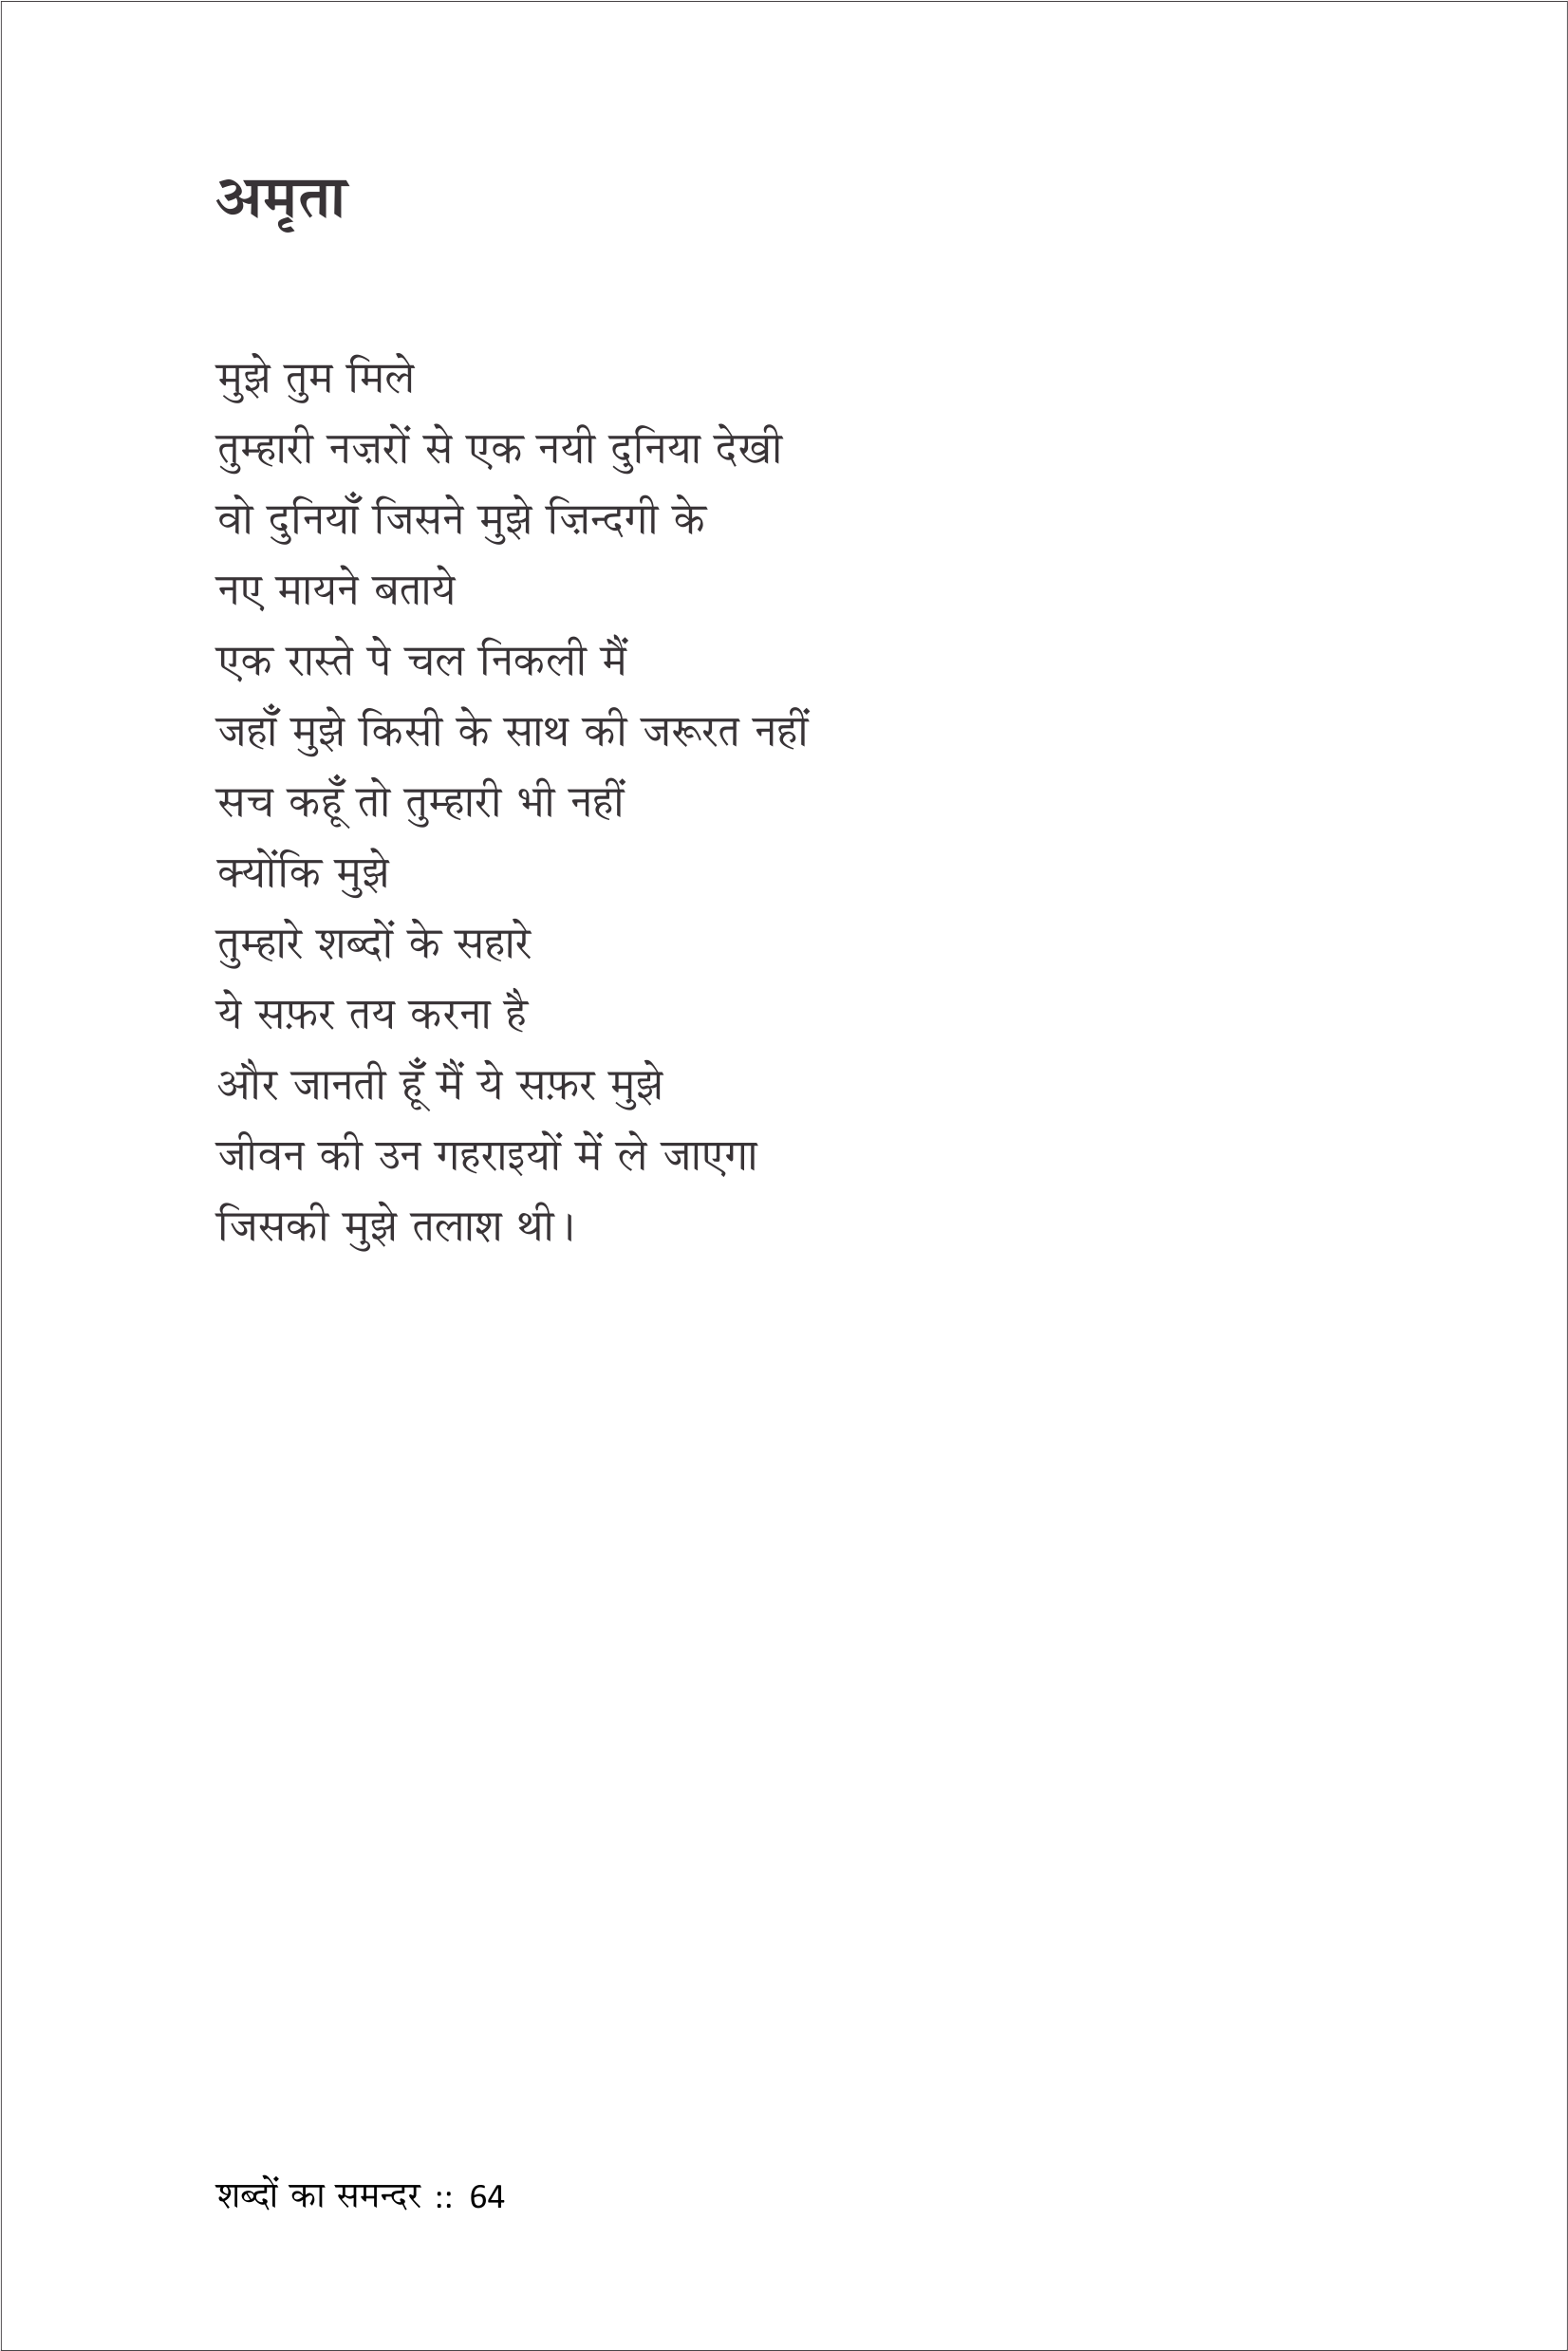 अमृता
मुझे तुम मिले
तुम्हारी नज़रों से एक नयी दुनिया देखी
वो दुनियाँ जिसने मुझे ज़िन्दगी के
नए मायने बताये
एक रास्ते पे चल निकली मैं
जहाँ मुझे किसी के साथ की जरूरत नहीं
सच कहूँ तो तुम्हारी भी नहीं
क्योंकि मुझे
तुम्हारे शब्दों के सहारे
ये सफ़र तय करना है
और जानती हूँ मैं ये सफ़र मुझे
जीवन की उन गहराइयों में ले जाएगा
जिसकी मुझे तलाश थी।
शब्दों का समन्दर :: 64